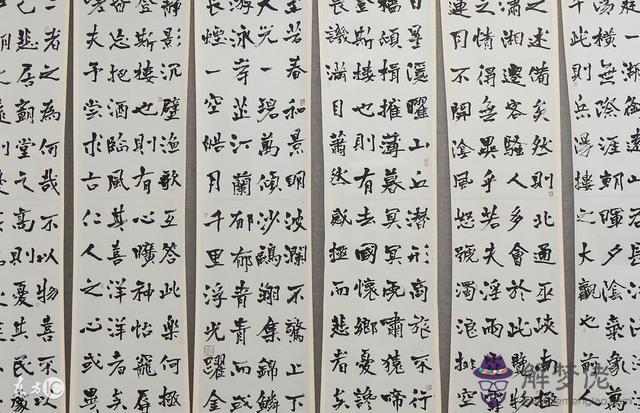 湯橫無際涯朝暉夕陰氣象
此則岳陽樓之大觀也前
之述備矣然則北通巫峽南極
瀟湘遷客騷人多會於此覽物
之情得無異乎若夫淫雨
連月不開陰風怒號濁浪排空
星隱曜山岳潛形商旅不行
檣傾楫摧薄暮冥冥虎嘯猿啼
登斯樓也則有去國懷鄉憂讒
畏譏滿目蕭然感極而悲者矣
至若春和景明波瀾不驚上下
天光一碧萬頃沙鷗翔集錦鱗
游泳岸芷汀蘭郁郁青青而
長煙一空皓月千里浮光躍金
靜影沉璧漁歌互答此樂何極
登斯樓也則有心曠神怡寵辱
忘把酒臨風其喜洋洋者矣
夫予嘗求古仁人之心或異
二者之為何哉不以物喜不以
己悲居廟堂之高則憂其民
东方IC
解梦佬